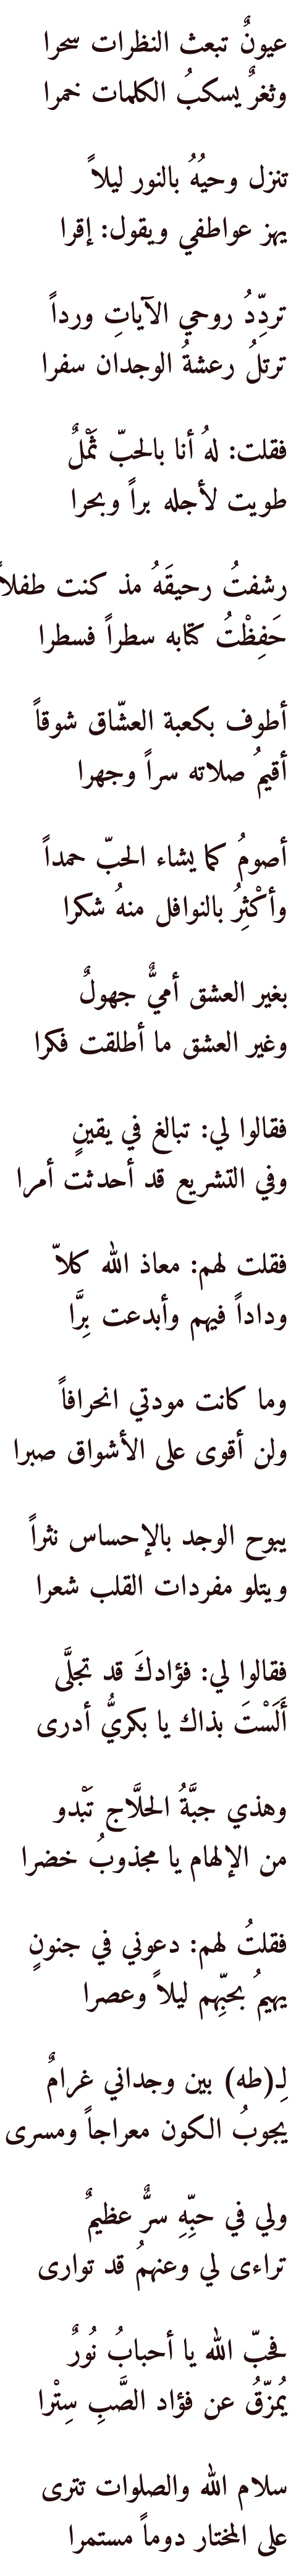 عيونٌ تبعث النظرات سحرا
وثغرٌ يسكبُ الكلمات خمرا
تنزل وحيُهُ بالنور ليلاً
يهز عواطفي ويقول: إقرا
تردِّدُ روحي الآياتِ ورداً
ترتلُ رعشةُ الوجدان سفرا
فقلت: لهُ أنا بالحبّ ثَمْلٌ
طويت لأجله براً وبحرا
رشفتُ رحيقَهُ مذ كنت طفلاً
حَفِظْتُ كتابه سطراً فسطرا
أطوف بكعبة العشّاق شوقاً
أقيمُ صلاته سراً وجهرا
أصومُ كما يشاء الحبّ حمداً
وأكْثِرُ بالنوافل منهُ شكرا
بغير العشق أميٌّ جهولٌ
وغير العشق ما أطلقت فكرا
فقالوا لي: تبالغ في يقينٍ
وفي التشريع قد أحدثت أمرا
فقلت لهم: معاذ الله كلاّ
وداداً فيهم وأبدعت بِرَّا
وما كانت مودتي انحرافاً
ولن أقوى على الأشواق صبرا
يبوح الوجد بالإحساس نثراً
ويتلو مفردات القلب شعرا
فقالوا لي: فؤادكَ قد تجلَّى
أَلَسْتَ بذاك يا بكريُّ أدرى
وهذي جبَّةُ الحلَّاج تَبْدو
من الإلهام يا مجذوبُ خضرا
فقلتُ لهم: دعوني في جنونٍ
يهيمُ بحبِّهم ليلاً وعصرا
لِـ(طه) بين وجداني غرامٌ
يجوبُ الكون معراجاً ومسرى
ولي في حبِّهِ سرٌّ عظيمٌ
تراءى لي وعنهمُ قد توارى
فحبّ الله يا أحبابُ نُورٌ
يُمزّقُ عن فؤاد الصَّبِ سِتْرا
سلام الله والصلوات تترى
على المختار دوماً مستمرا